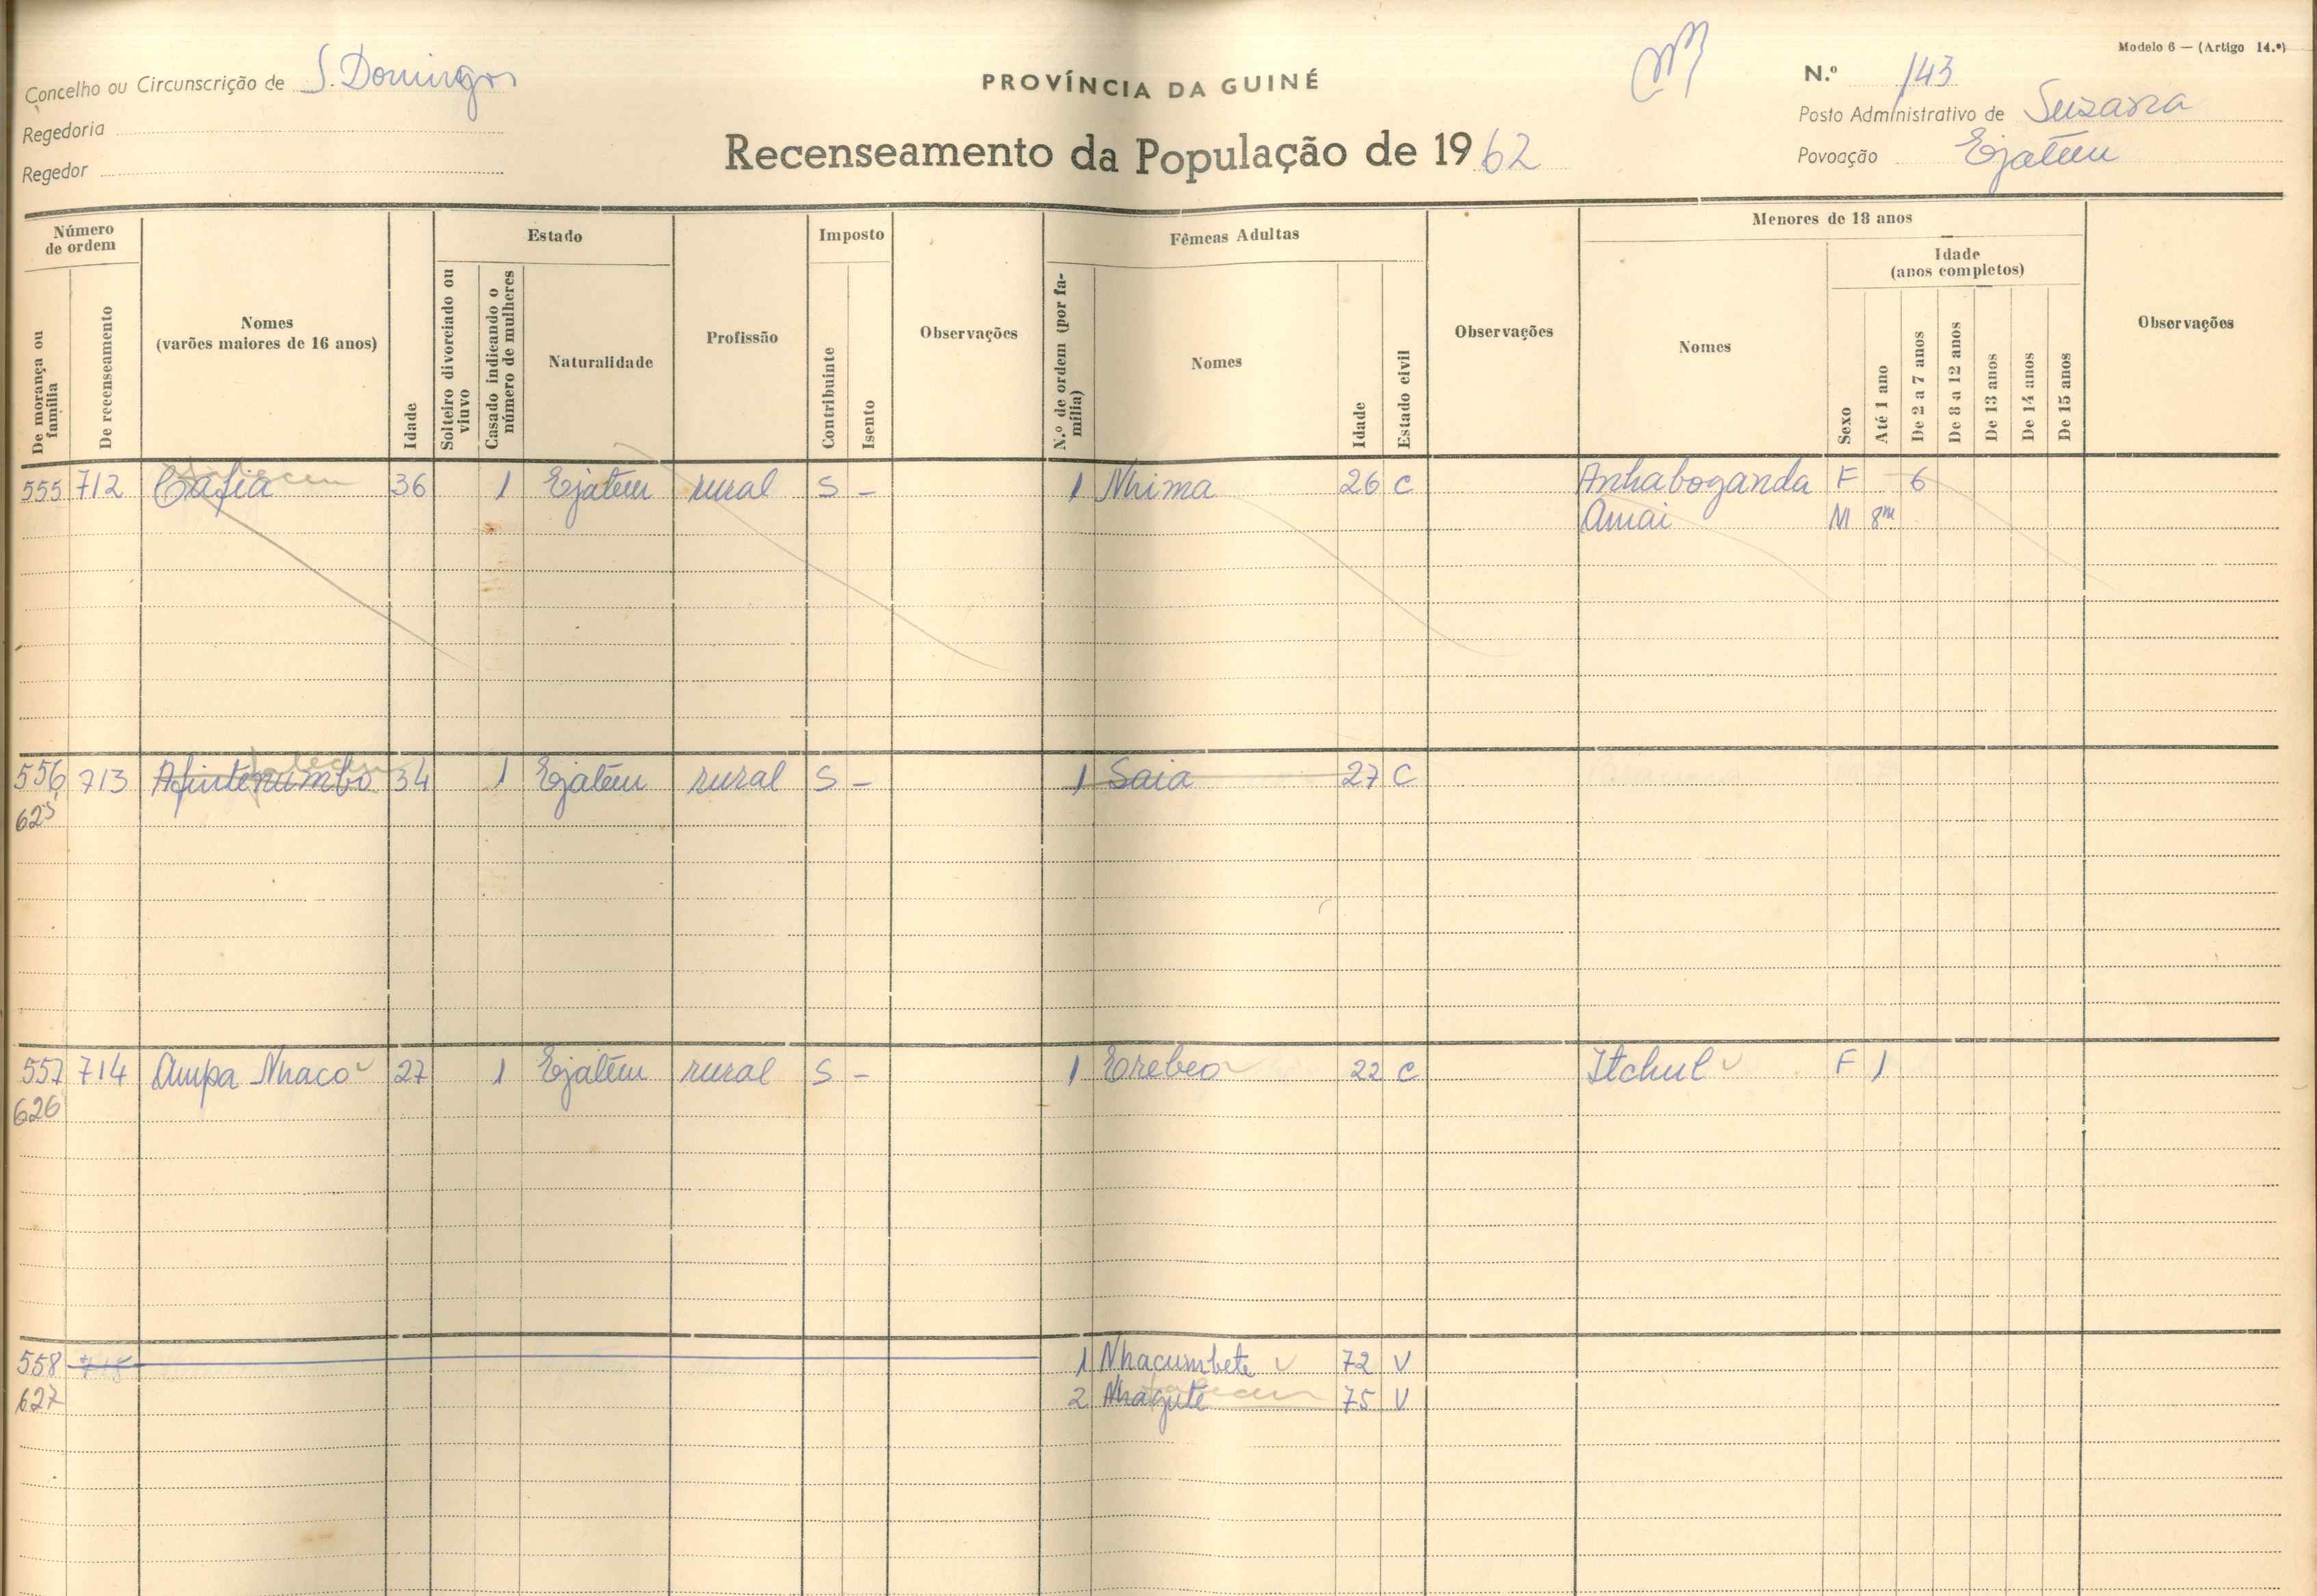 Modelo 6 — (Artigo 14.º)
Concelho ou Circunscrição de S. Domingos
PROVÍNCIA DA GUINÉ
N.º 143
Regedoria
Posto Administrativo de Suzana
Regedor
Recenseamento da População de 1962
Povoação Ejatem
Número de ordem
Estado
Imposto
Fêmeas Adultas
Menores de 18 anos
Idade
(anos completos)
De morança ou família
De recenseamento
Nomes
(varões maiores de 16 anos)
Idade
Solteiro divorciado ou viuvo
Casado indicando o número de mulheres
Naturalidade
Profissão
Contribuinte
Isento
Observações
N.º de ordem (por família)
Nomes
Idade
Estado civil
Observações
Nomes
Sexo
Até 1 ano
De 2 a 7 anos
De 8 a 12 anos
De 13 anos
De 14 anos
De 15 anos
Observações
555 712 Cafia 36 1 Ejatem rural S - 1 Nhima 26 C Anhaboganda F 6
Amai M 8m
556 713 34 1 Ejatem rural S - 1 Saia 27 C
625
557 714 Ampa Nhaco 27 1 Ejatem rural S - 1 Erebeo 22 C Itchul F 1
626
558 715 1 Nhacumbete 72 V
627 2 Nhagute 75 V